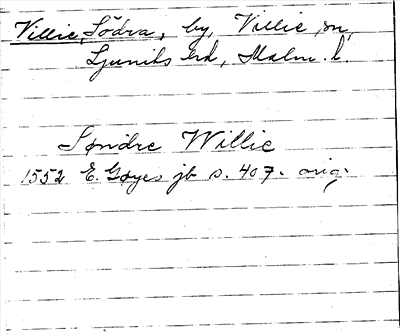 Villie, Södra, by, Villie sn,
Ljunits hd, Malm. l.
Søndre Willie
1552 E. Gøyes jb s. 407. orig.